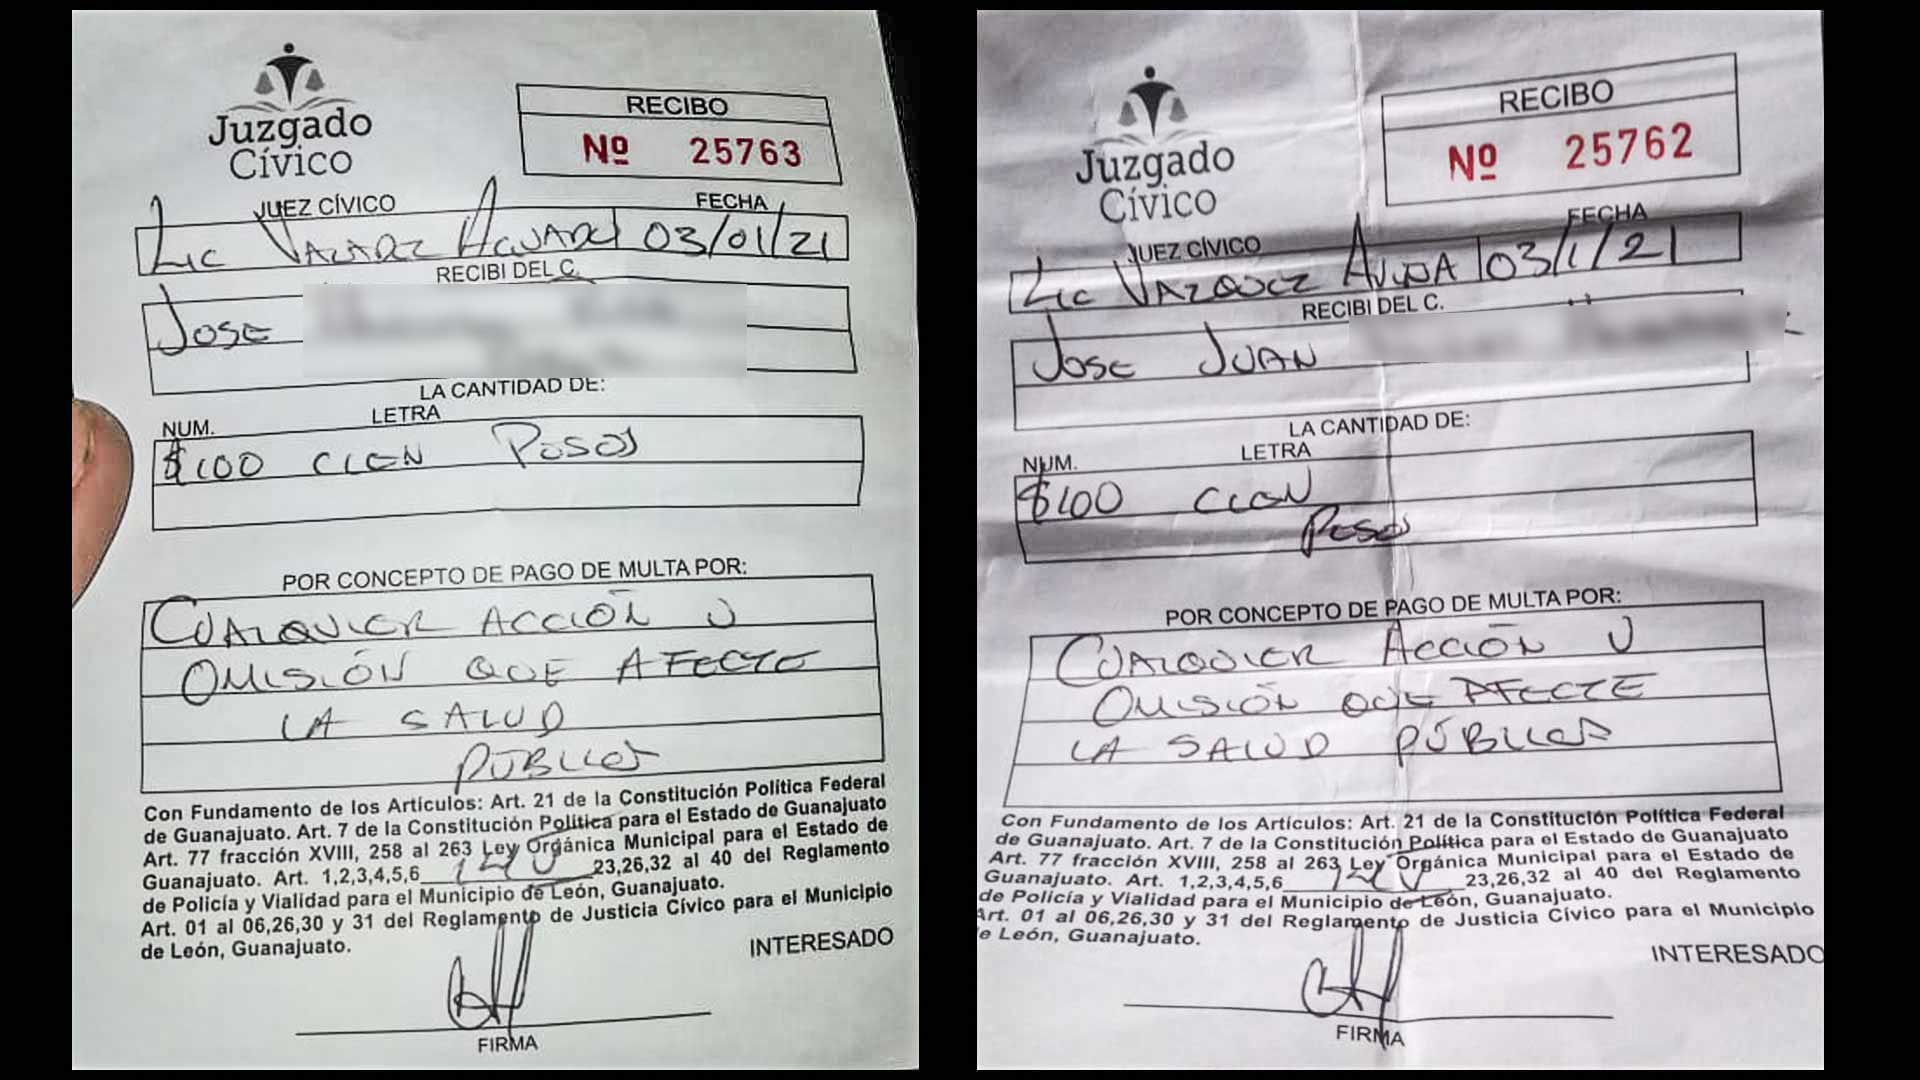 Juzgado
Cívico
RECIBO
Nº 25763
JUEZ CÍVICO FECHA
Lic 03/01/21
RECIBI DEL C.
JOSE
LA CANTIDAD DE:
NUM. LETRA
$100 CIEN PESOS
POR CONCEPTO DE PAGO DE MULTA POR:
CUALQUIER ACCIÓN U
OMISIÓN QUE AFECTE
LA SALUD
PÚBLICA
Con Fundamento de los Artículos: Art. 21 de la Constitución Política Federal
de Guanajuato. Art. 7 de la Constitución Política para el Estado de Guanajuato
Art. 77 fracción XVIII, 258 al 263 Ley Orgánica Municipal para el Estado de
Guanajuato. Art. 1,2,3,4,5,6 23,26,32 al 40 del Reglamento
de Policía y Vialidad para el Municipio de León, Guanajuato.
Art. 01 al 06,26,30 y 31 del Reglamento de Justicia Cívico para el Municipio
de León, Guanajuato.
INTERESADO
FIRMA
Juzgado
Cívico
RECIBO
Nº 25762
JUEZ CÍVICO FECHA
Lic VAZQUEZ 03/1/21
RECIBI DEL C.
JOSE JUAN
LA CANTIDAD DE:
NUM. LETRA
$100 CIEN
PESOS
POR CONCEPTO DE PAGO DE MULTA POR:
CUALQUIER ACCIÓN U
OMISIÓN QUE AFECTE
LA SALUD PÚBLICA
Con Fundamento de los Artículos: Art. 21 de la Constitución Política Federal
de Guanajuato. Art. 7 de la Constitución Política para el Estado de Guanajuato
Art. 77 fracción XVIII, 258 al 263 Ley Orgánica Municipal para el Estado de
Guanajuato. Art. 1,2,3,4,5,6 23,26,32 al 40 del Reglamento
de Policía y Vialidad para el Municipio de León, Guanajuato.
Art. 01 al 06,26,30 y 31 del Reglamento de Justicia Cívico para el Municipio
e León, Guanajuato.
INTERESADO
FIRMA